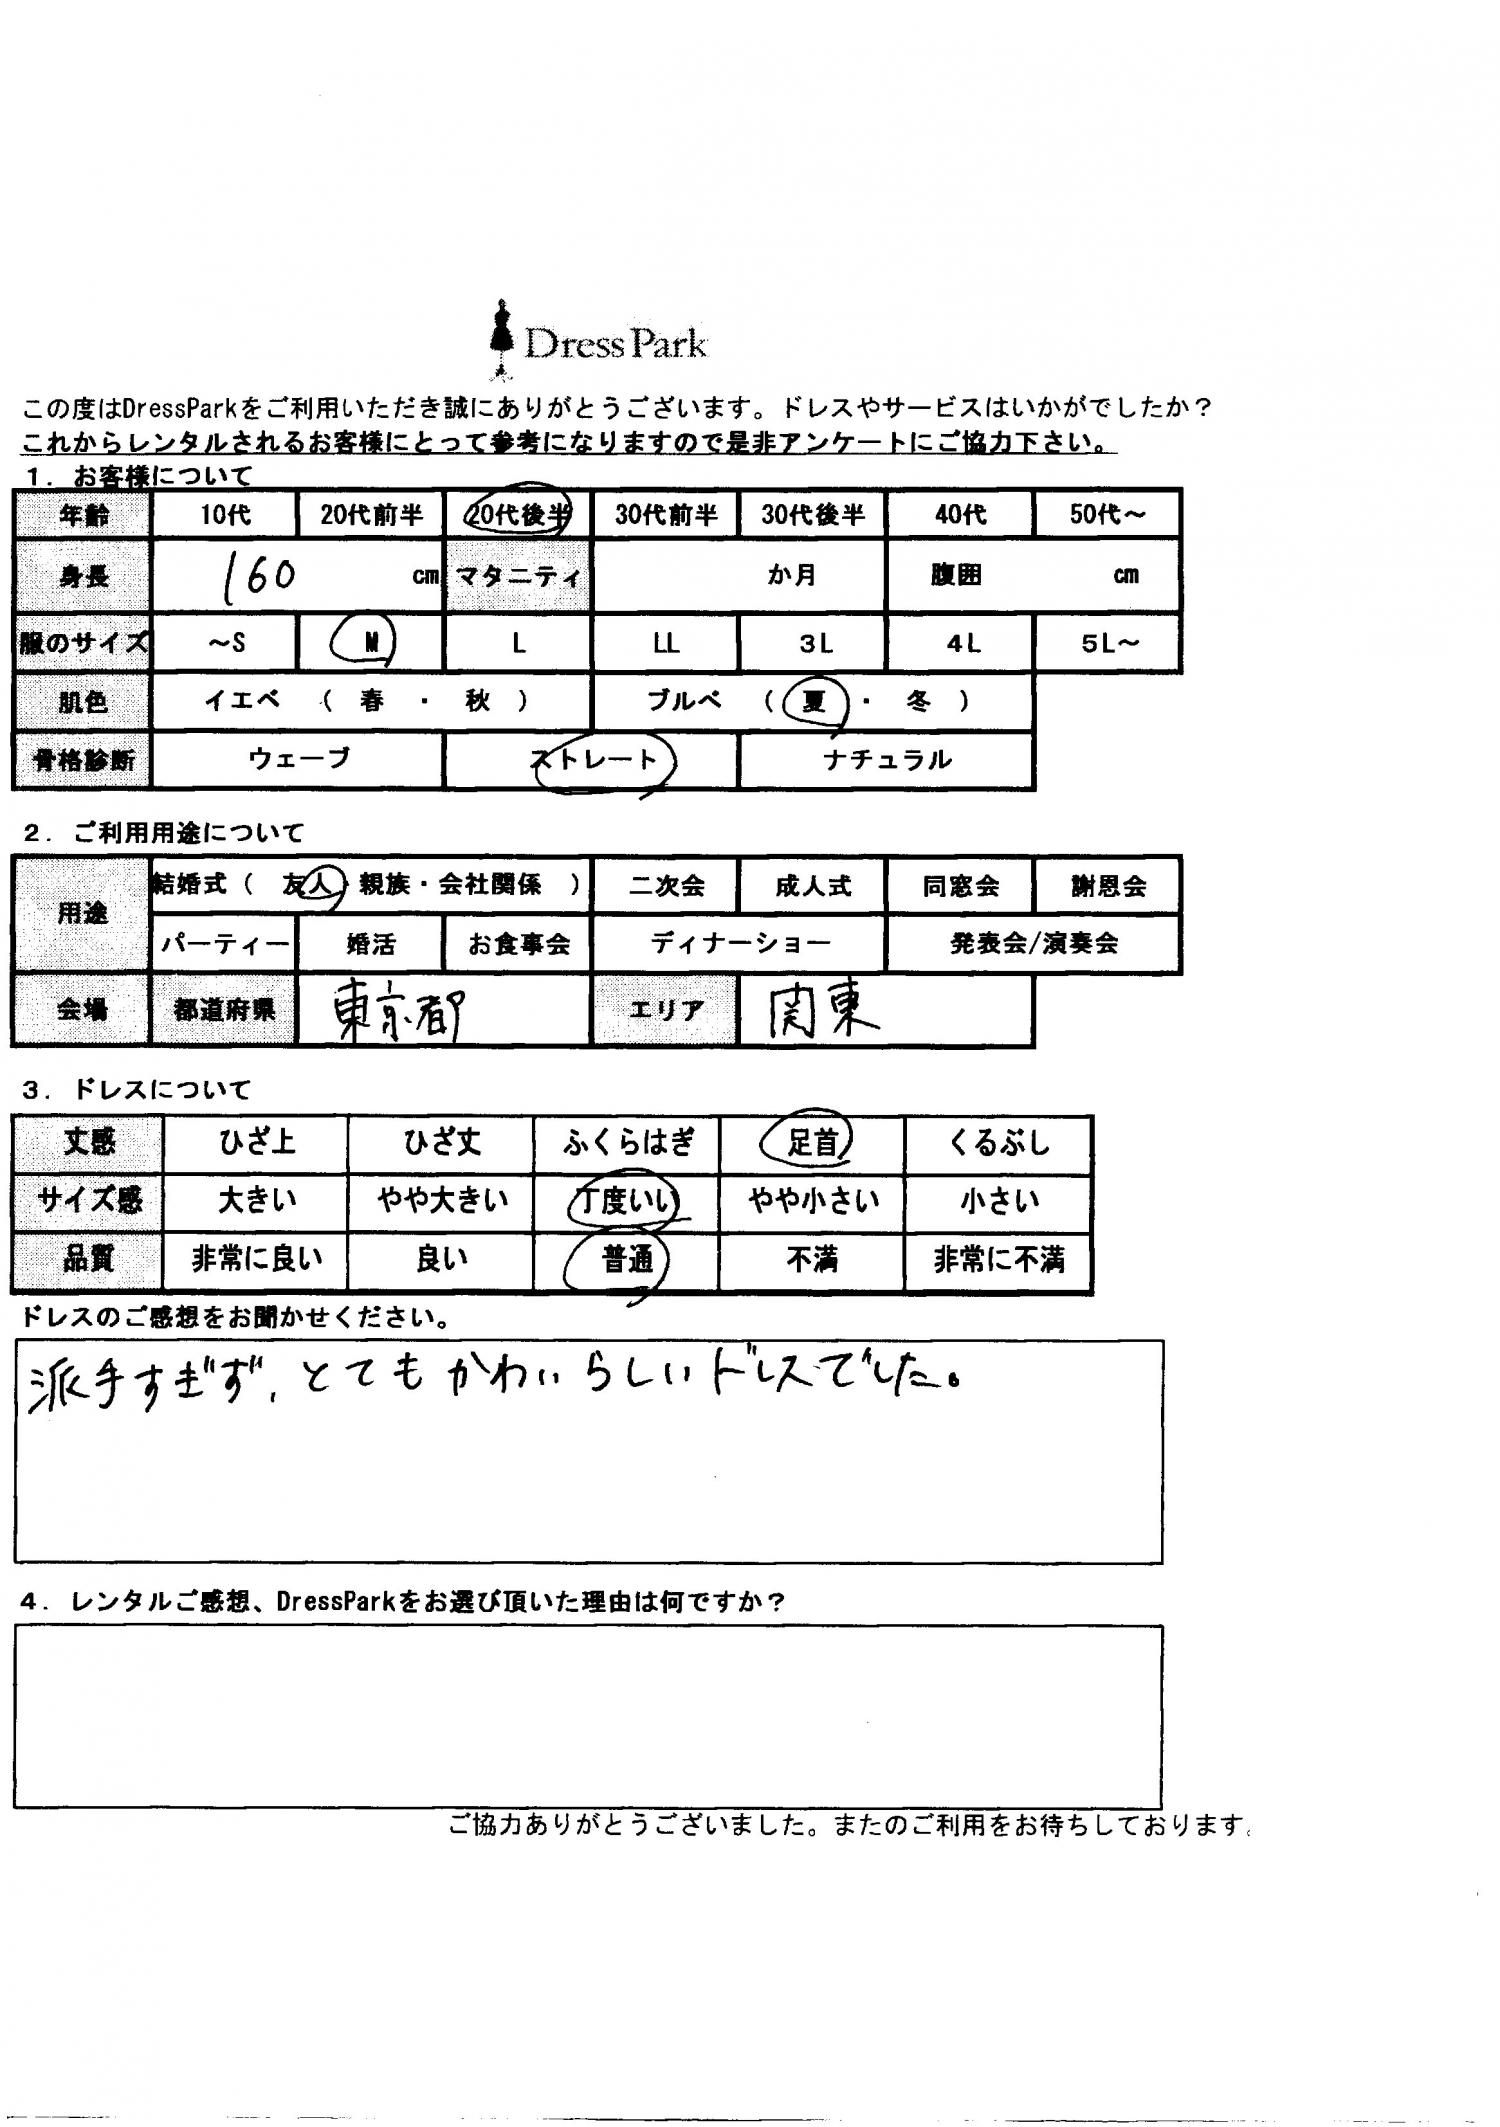 Dress Park
この度はDressParkをご利用いただき誠にありがとうございます。ドレスやサービスはいかがでしたか？
これからレンタルされるお客様にとって参考になりますので是非アンケートにご協力下さい。
１．お客様について
年齢 10代 20代前半 20代後半 30代前半 30代後半 40代 50代～
身長 160 cm マタニティ か月 腹囲 cm
服のサイズ ～S M L LL 3L 4L 5L～
肌色 イエベ （ 春 ・ 秋 ） ブルベ （ 夏 ・ 冬 ）
骨格診断 ウェーブ ストレート ナチュラル
２．ご利用用途について
用途 結婚式（ 友人・親族・会社関係 ） 二次会 成人式 同窓会 謝恩会
パーティー 婚活 お食事会 ディナーショー 発表会/演奏会
会場 都道府県 東京都 エリア 関東
３．ドレスについて
丈感 ひざ上 ひざ丈 ふくらはぎ 足首 くるぶし
サイズ感 大きい やや大きい 丁度いい やや小さい 小さい
品質 非常に良い 良い 普通 不満 非常に不満
ドレスのご感想をお聞かせください。
派手すぎず、とてもかわいらしいドレスでした。
４．レンタルご感想、DressParkをお選び頂いた理由は何ですか？
ご協力ありがとうございました。またのご利用をお待ちしております。